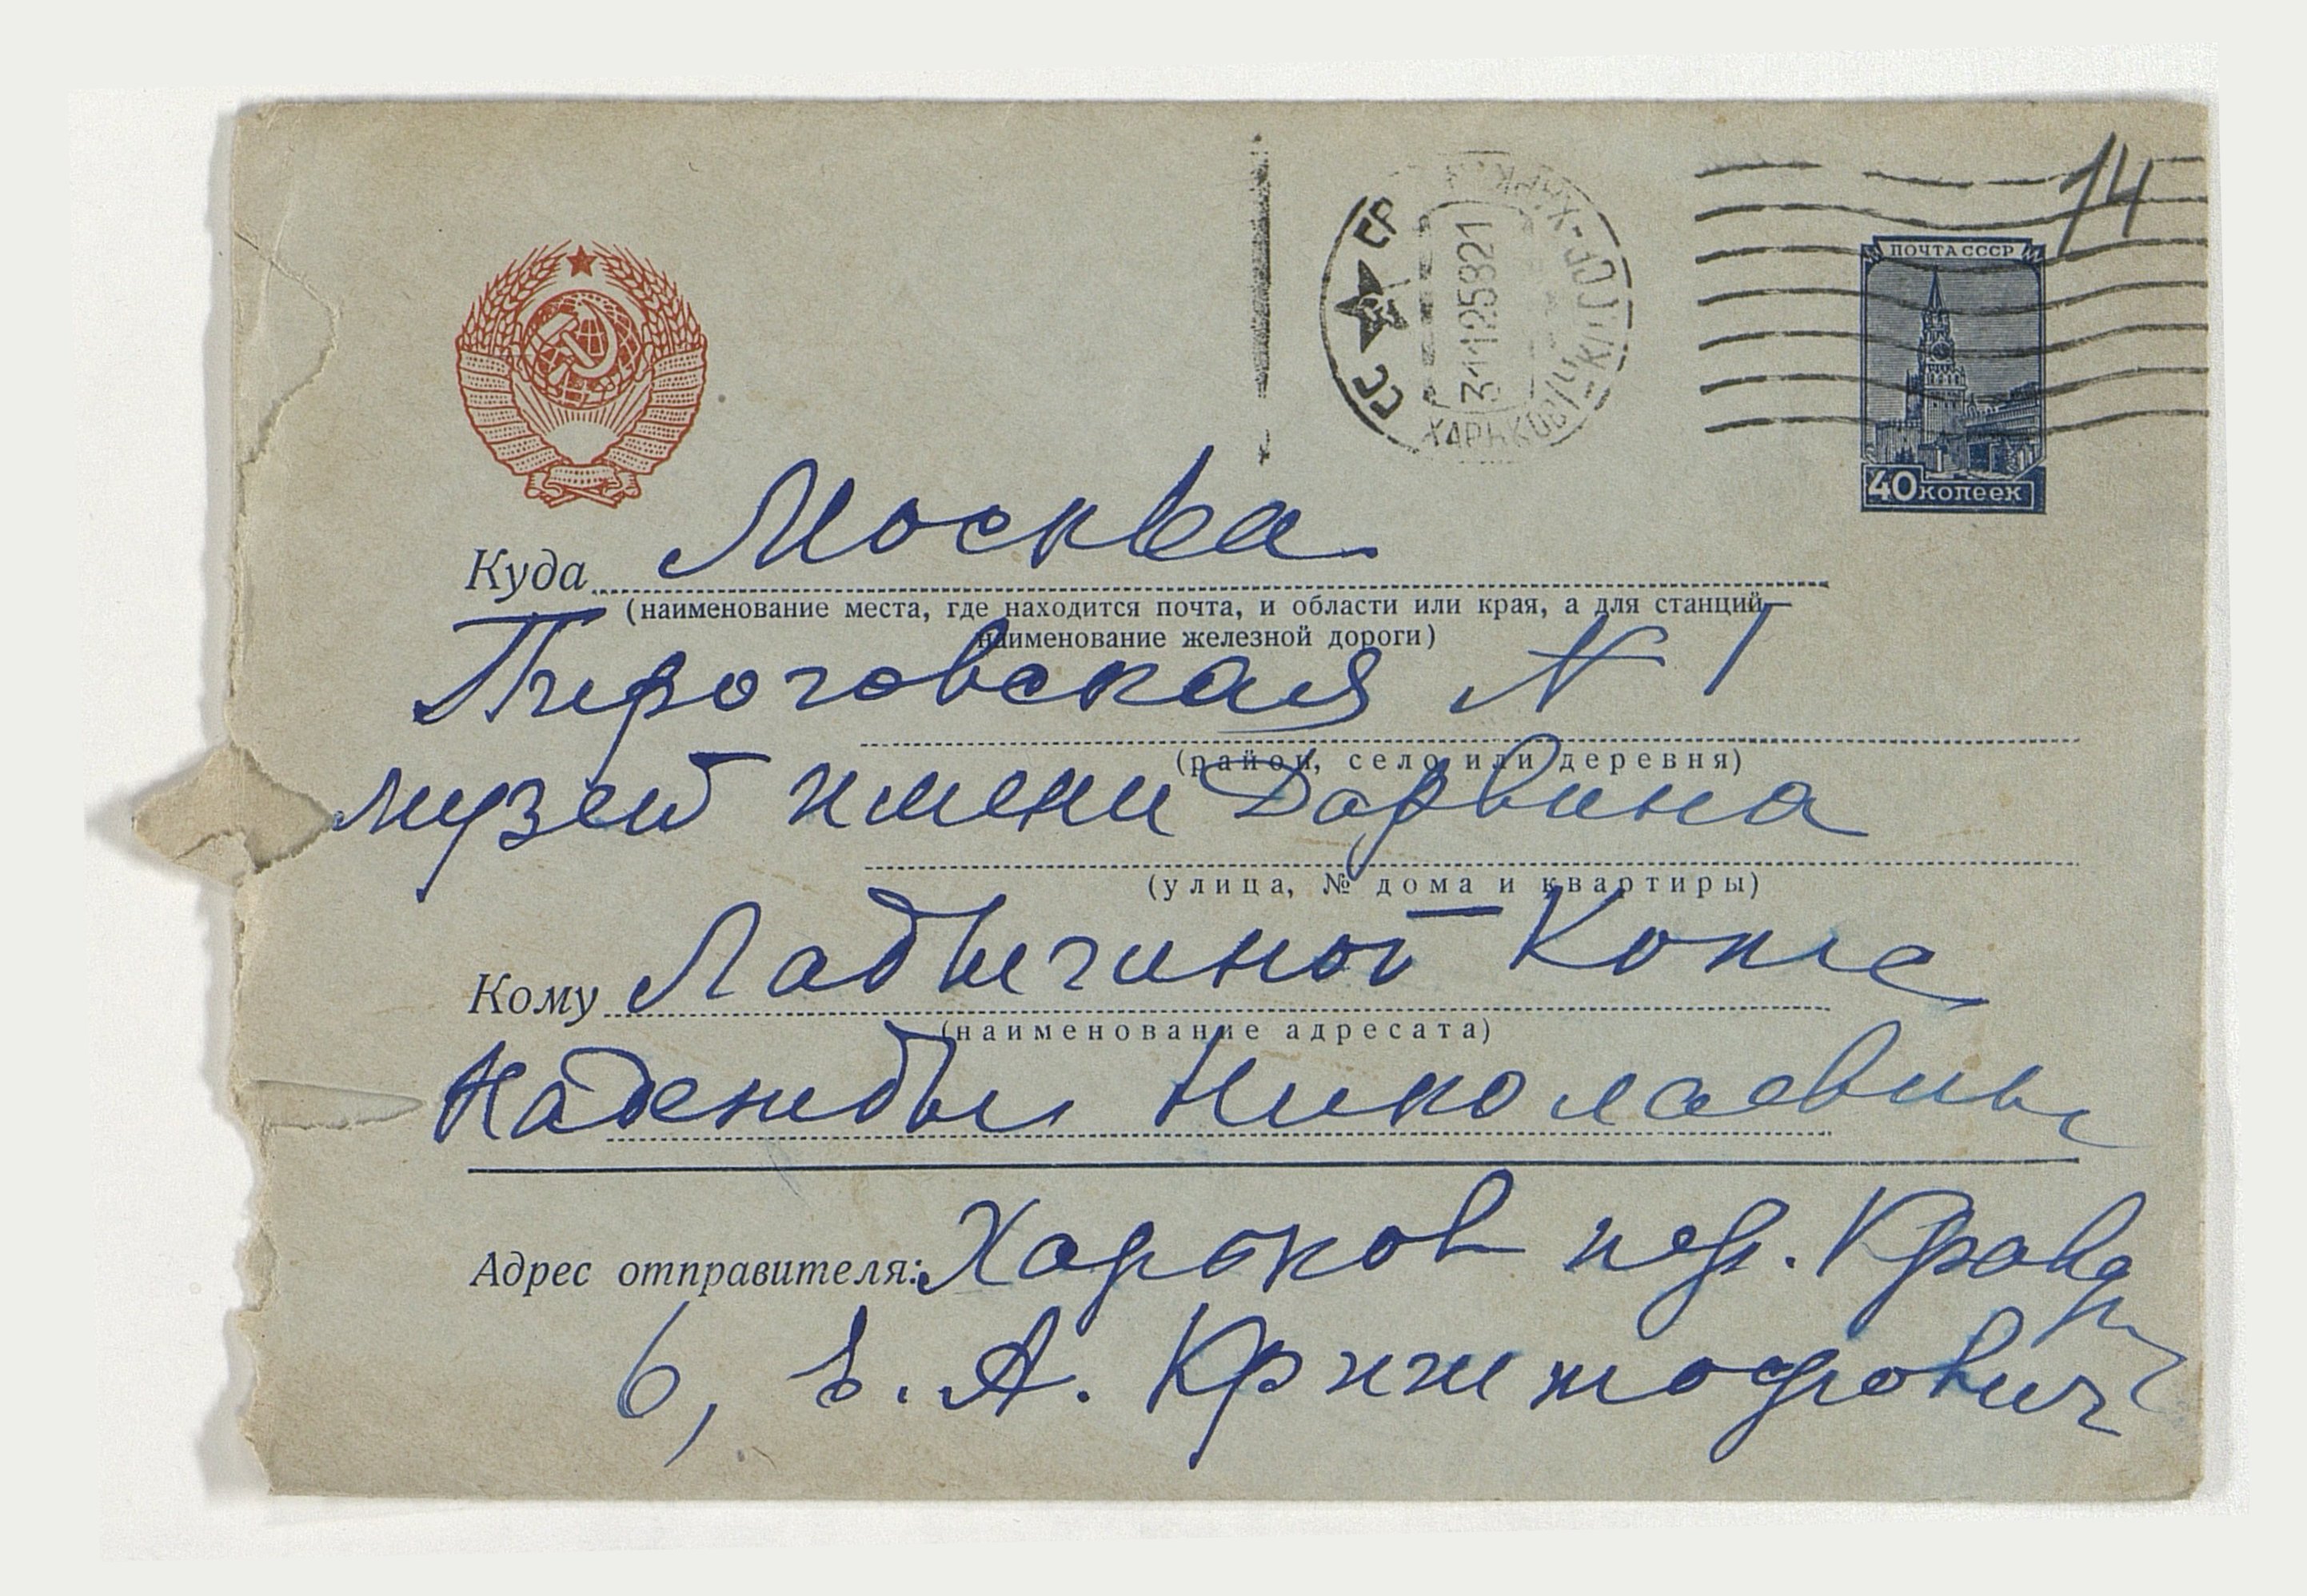 14
ПОЧТА СССР
40 копеек
СССР
31125821
ХАРЬКОВ
Куда Москва
(наименование места, где находится почта, и области или края, а для станций
наименование железной дороги)
Пироговская N 1
(район, село или деревня)
музей имени Дарвина
(улица, № дома и квартиры)
Кому Ладыгиной Котс
(наименование адресата)
Надежды Николаевны
Адрес отправителя: Харьков пер. Кравц
6, А. Криштофович